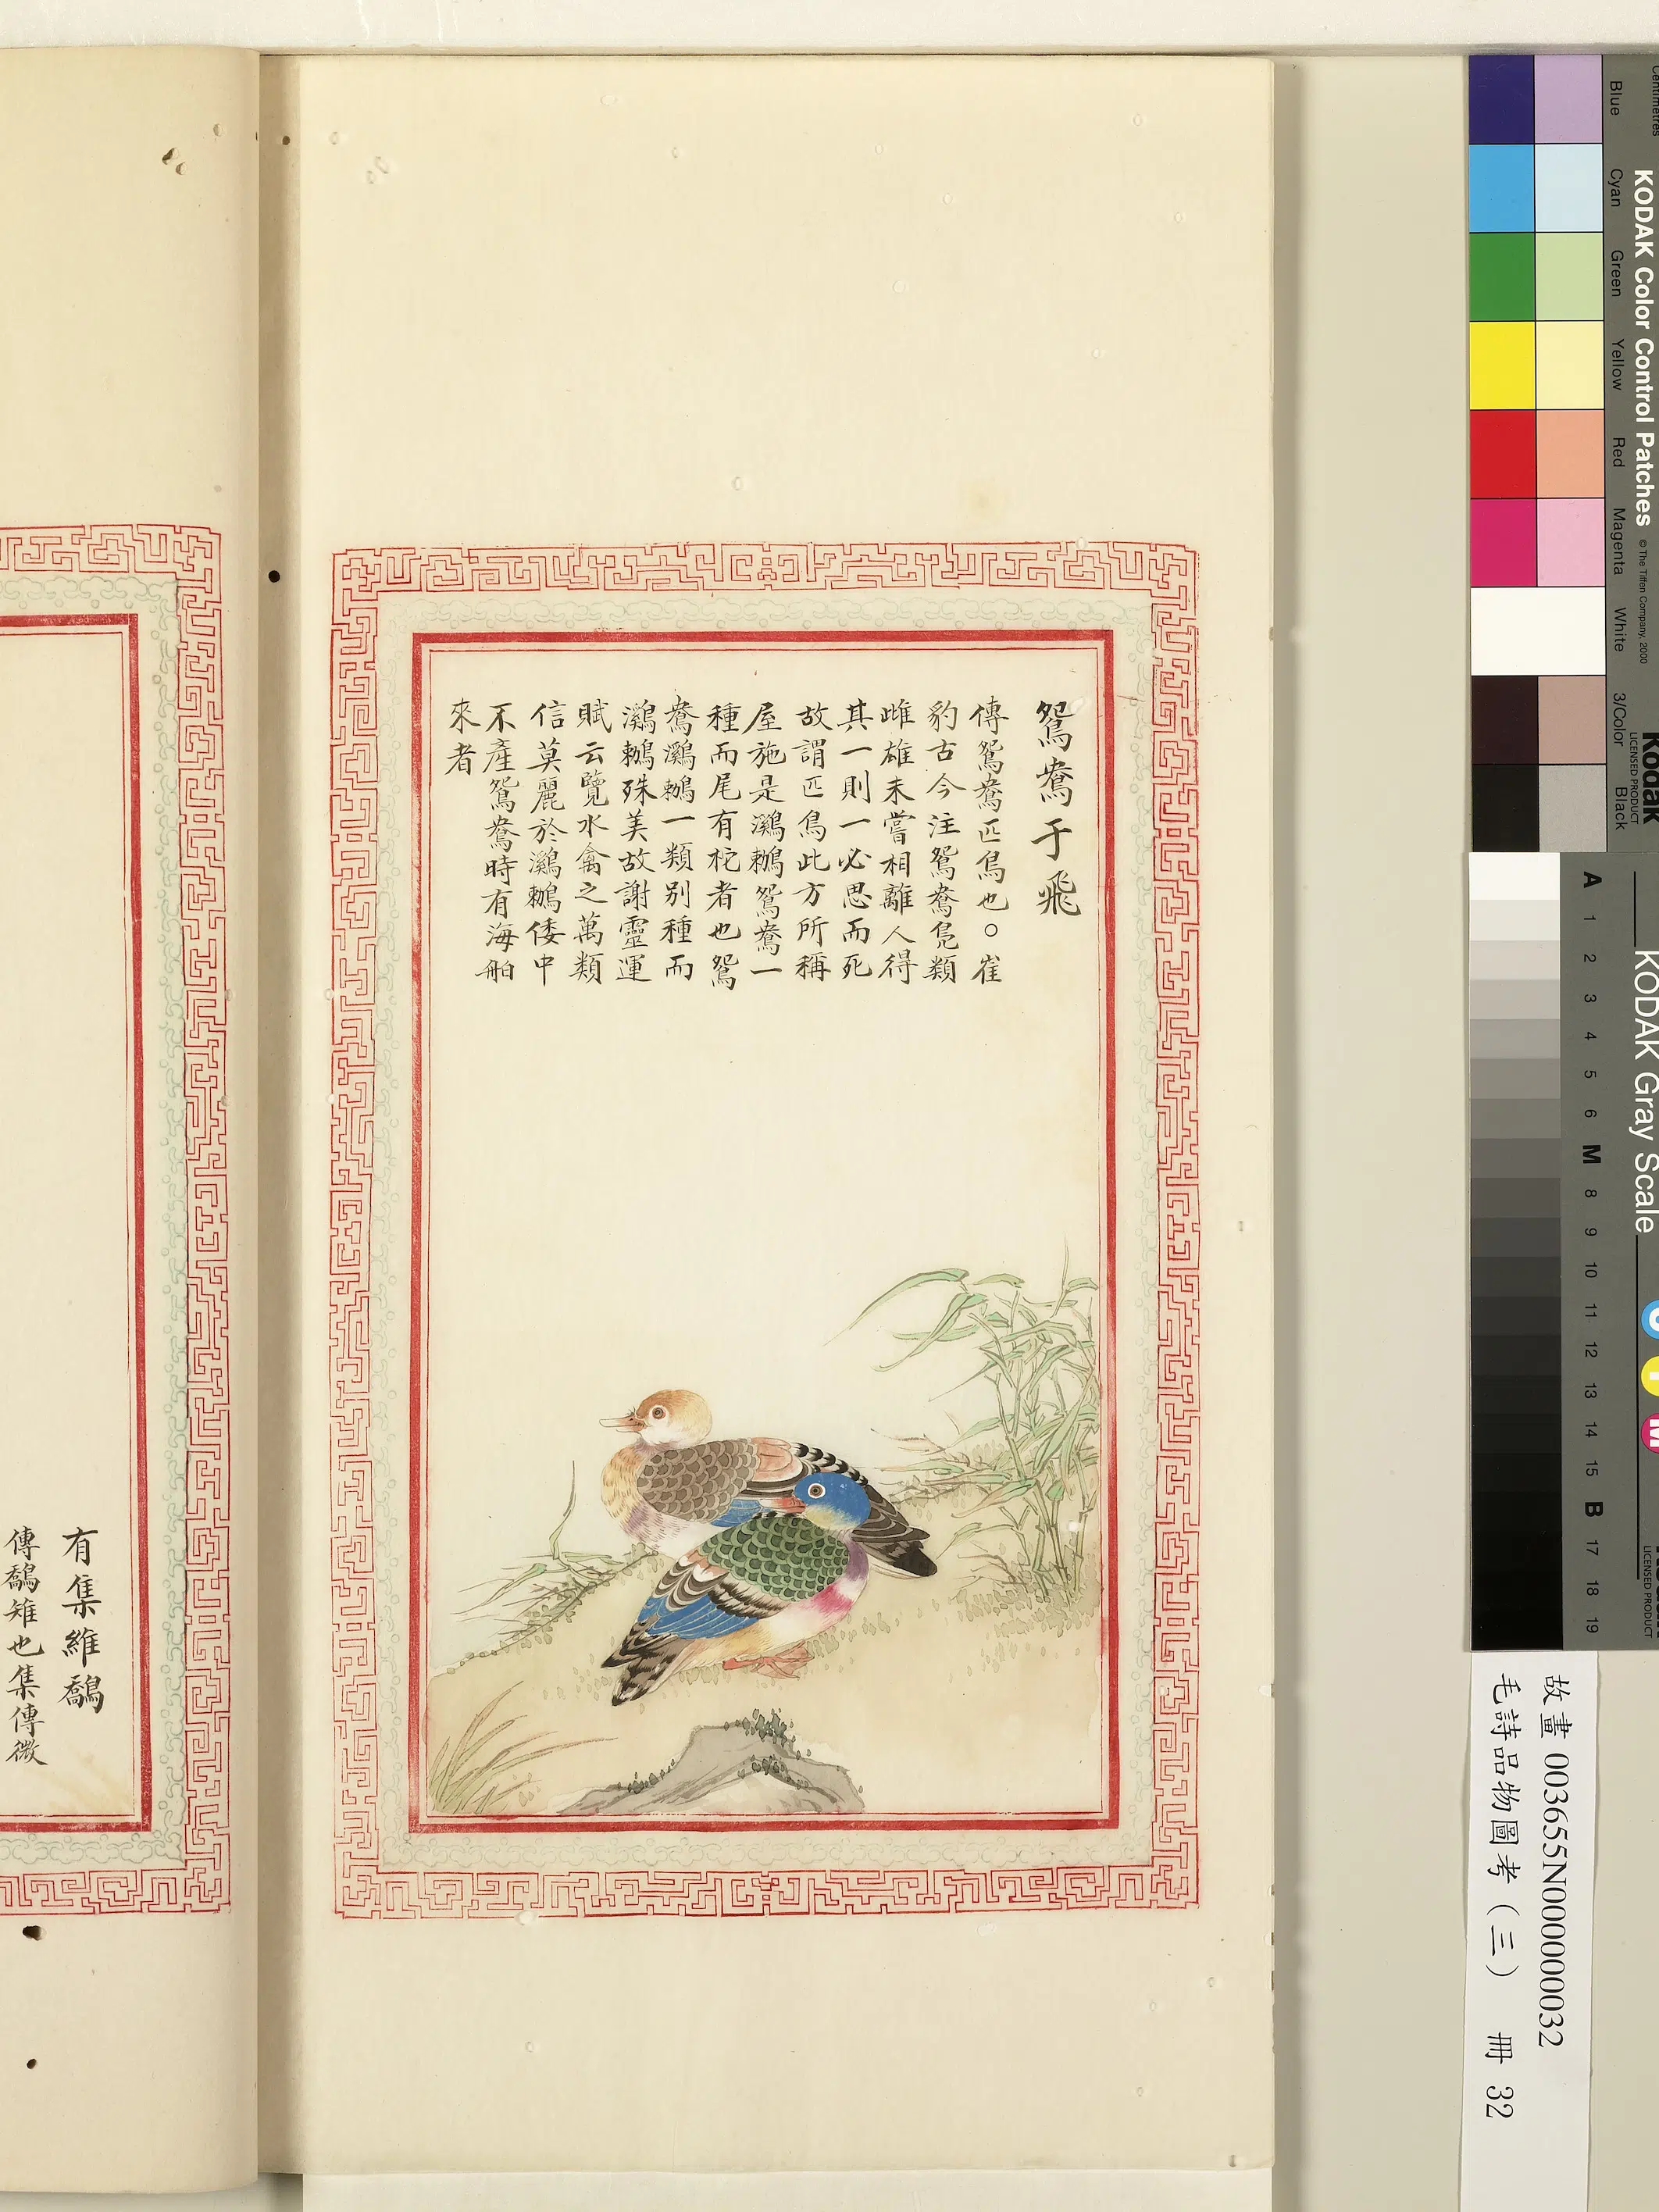 鴛鴦于飛
傳鴛鴦匹鳥也○崔
豹古今注鴛鴦鳧類
雌雄未嘗相離人得
其一則一必思而死
故謂匹鳥此方所稱
屋施是鸂鶒鴛鴦一
種而尾有柁者也鴛
鴦鸂鶒一類别種而
鸂鶒殊美故謝靈運
賦云覽水禽之萬類
信莫麗於鸂鶒倭中
不產鴛鴦時有海舶
來者
有集維鷮
傳鷮雉也集傳微
故畫 003655N000000032
毛詩品物圖考（三） 冊 32
KODAK Color Control Patches
© The Tiffen Company, 2000
Kodak
LICENSED PRODUCT
Centimetres
Blue
Cyan
Green
Yellow
Red
Magenta
White
3/Color
Black
KODAK Gray Scale
A 1 2 3 4 5 6 M 8 9 10 11 12 13 14 15 B 17 18 19
C
Y
M
LICENSED PRODUCT